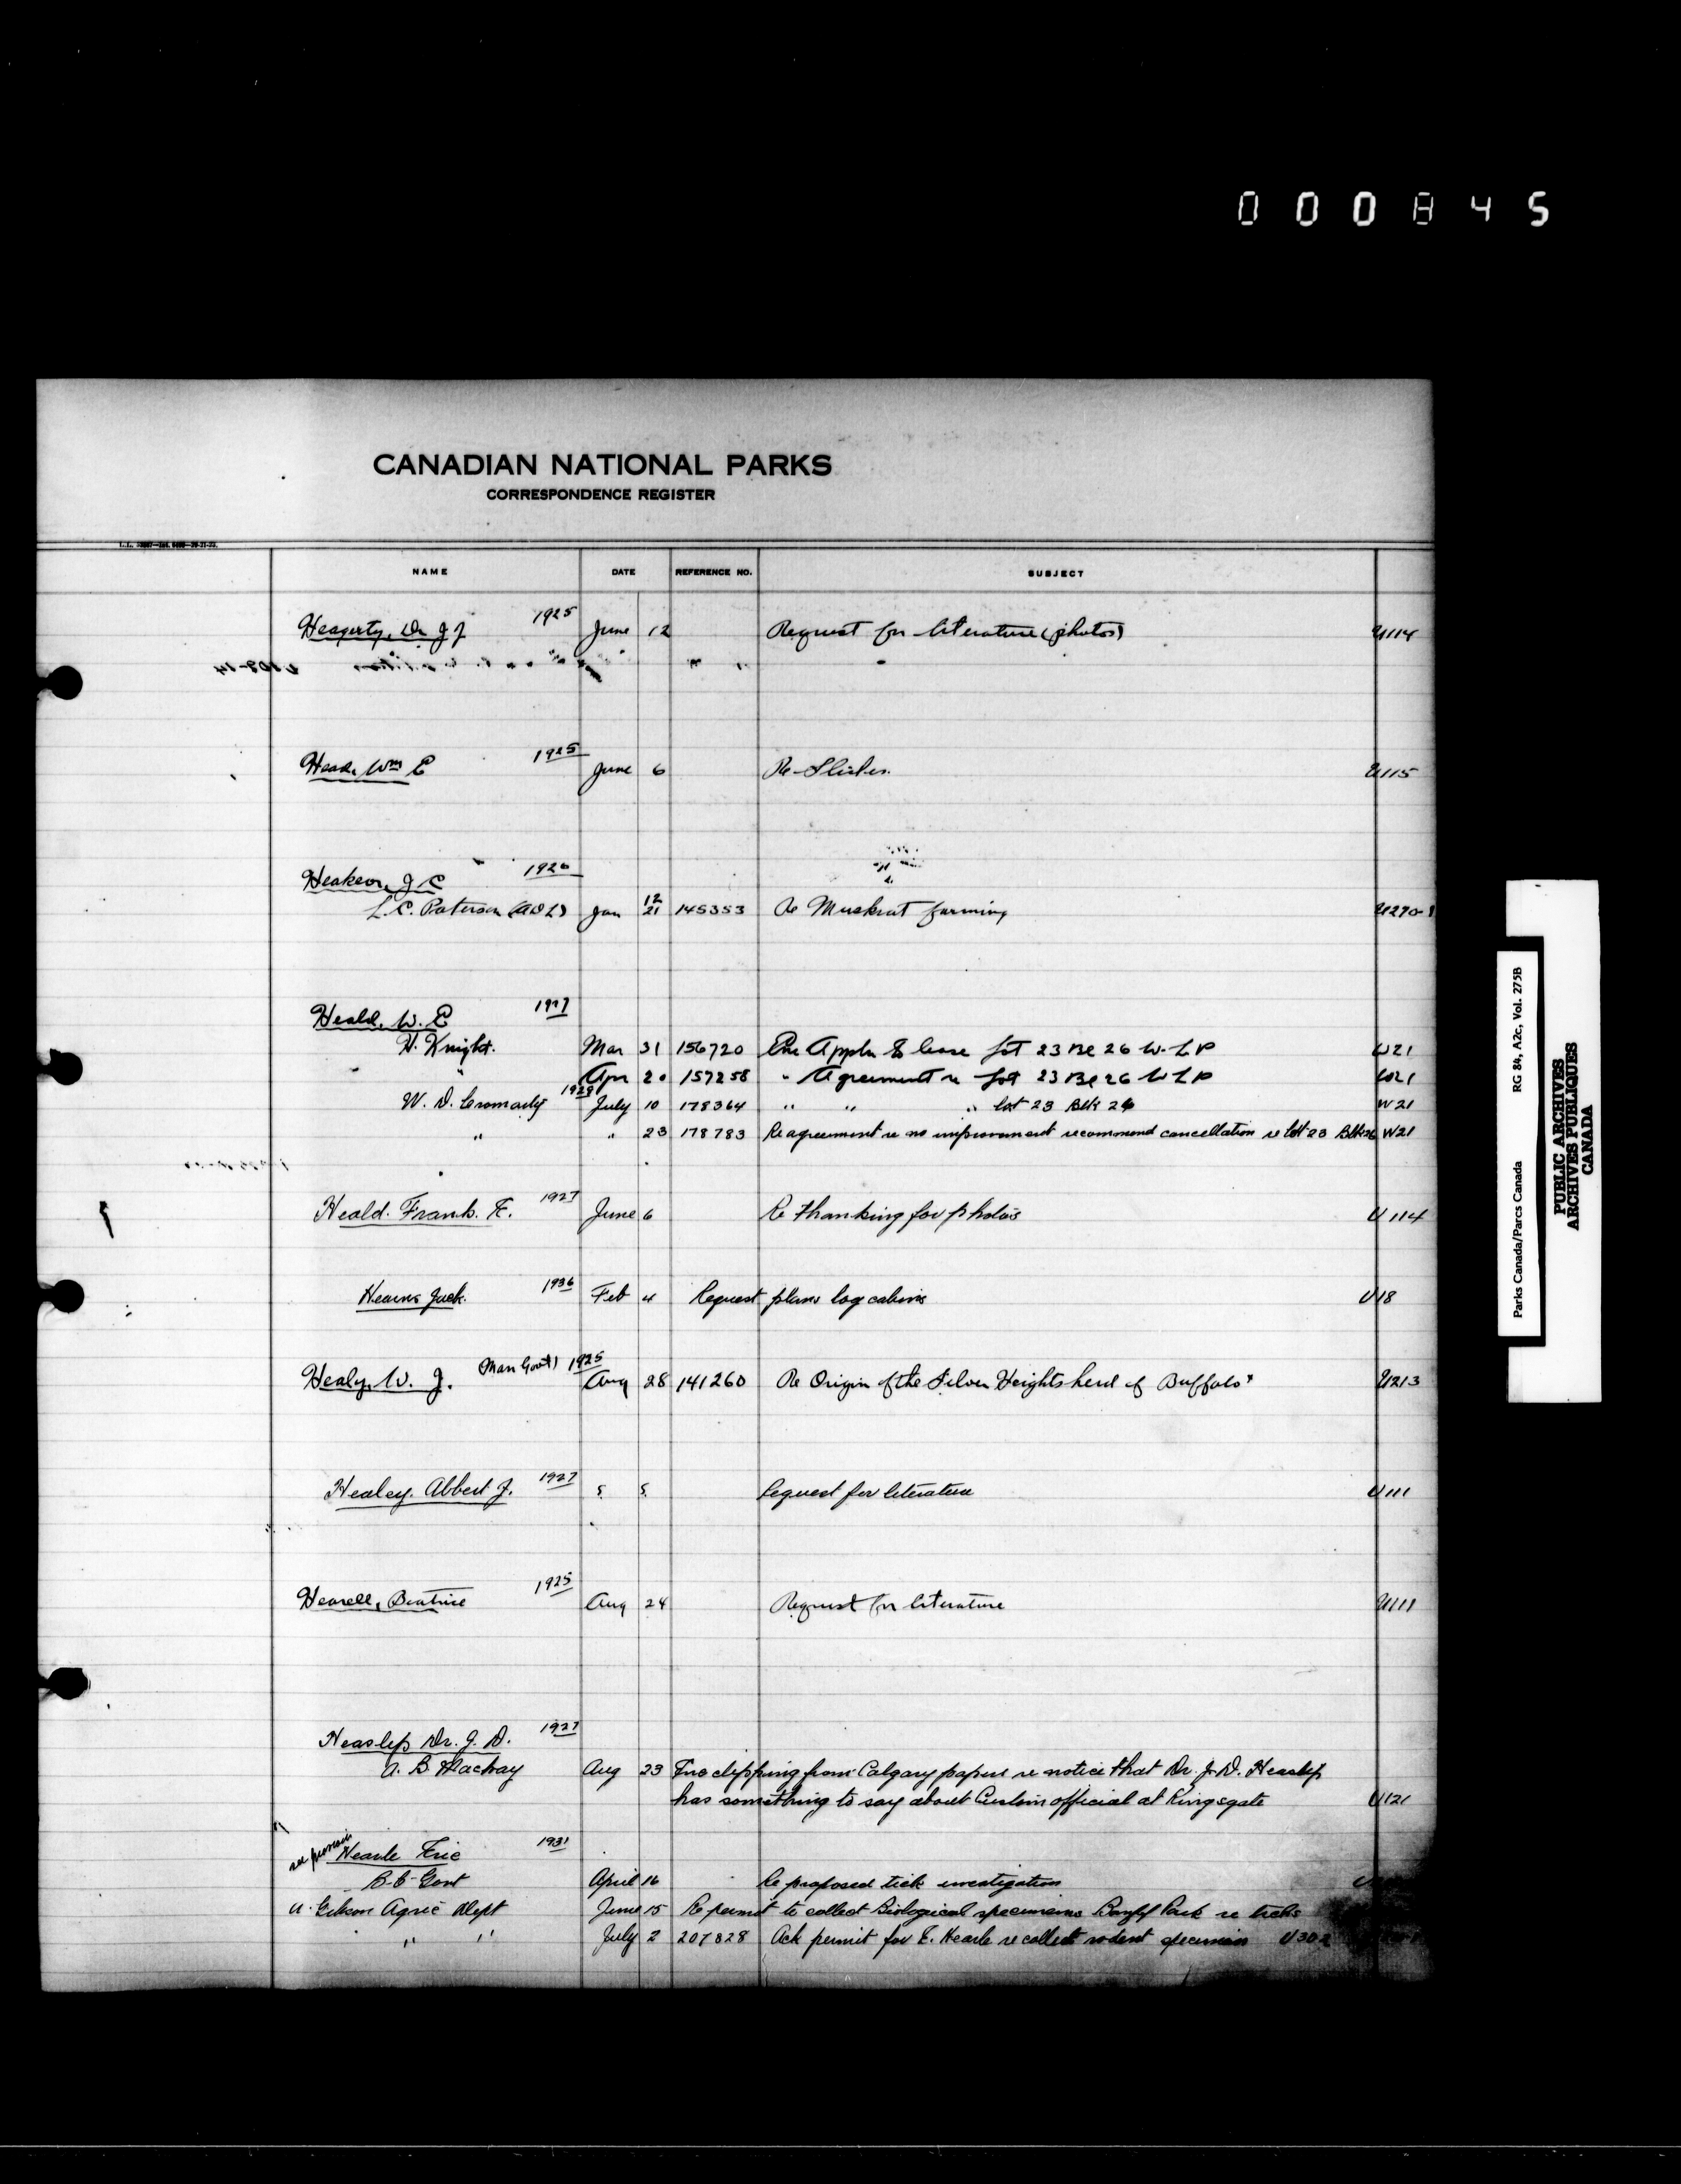 000845
CANADIAN NATIONAL PARKS
CORRESPONDENCE REGISTER
NAME DATE REFERENCE NO. SUBJECT
Heagerty, Dr J J 1925 June 12 Request for literature (photos) U114
Head, Wm E 1925 June 6 Re Slides. U115
J C 1926
L. C. Paterson Jan 12 21 145353 Re Muskrat farming U270-1
Heald, W. E 1927
H. Knight. Mar 31 156720 Enc Appln & lease Lot 23 Bl 26 W-L P W21
" Apr 20 157258 " Agreement re Lot 23 Bl 26 W L P W21
W. D. Cromarty 1929 July 10 178364 " " " Lot 23 Blk 26 W21
" " 23 178783 Re agreement re no improvement recommend cancellation re lot 23 Blk 26 W21
Heald. Frank. F. 1927 June 6 Re thanking for photos U114
Hearns Jack. 1936 Feb 4 Request plans log cabins U18
Healy, W. J. (Man Govt) 1925 Aug 28 141260 Re Origin of the Silver Heights herd of Buffalo U213
Healey. Albert J. 1927 5 5 Request for literature U111
Hearell, Beatrice 1925 Aug 24 Request for literature U111
Heaslip Dr. J. D. 1927
A. B. Mackay Aug 23 Enc clipping from Calgary papers re notice that Dr. J. D. Heaslip
has something to say about Custom official at Kingsgate U121
Hearle Eric 1931
B. C. Govt April 16 Re proposed tick investigation
A. Gibson Agric Dept June 15 Re permit to collect Biological specimens Banff Park re ticks
" " July 2 207828 Ack permit for E. Hearle re collect rodent specimen U302
Parks Canada/Parcs Canada RG 84, A2c, Vol. 275B
PUBLIC ARCHIVES
ARCHIVES PUBLIQUES
CANADA